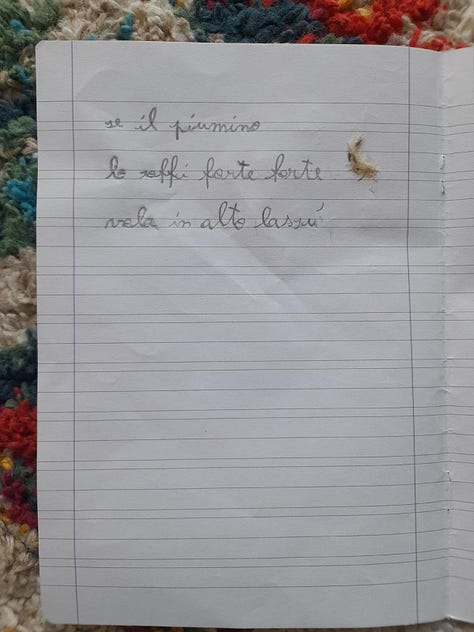 se il piumino
lo soffi forte forte
vola in alto lassú